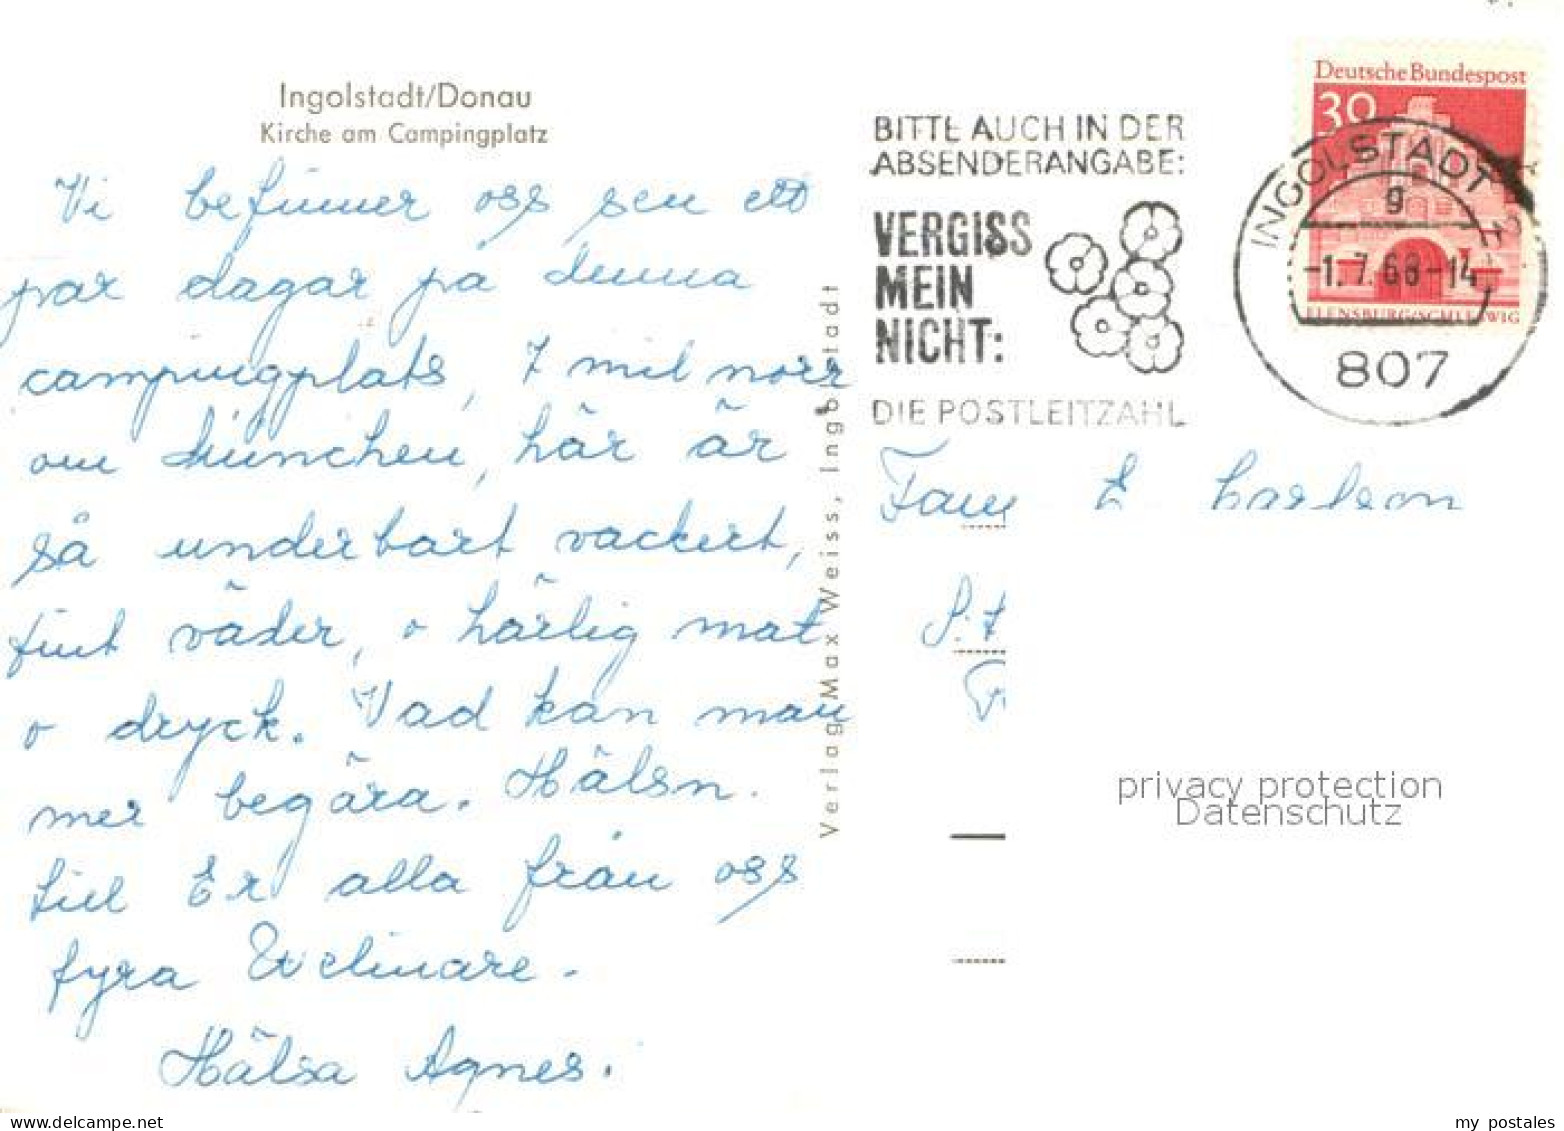 Ingolstadt/Donau
Kirche am Campingplatz
Vi befinner oss sen ett
par dagar på denna
campingplats, 7 mil norr
om München, här är
så underbart vackert,
fint väder, o härlig mat
o dryck. Vad kan man
mer begära. Hälsn.
till Er alla från oss
fyra
Hälsa Agnes.
Verlag Max Weiss, Ingolstadt
BITTE AUCH IN DER
ABSENDERANGABE:
VERGISS
MEIN
NICHT:
DIE POSTLEITZAHL
Deutsche Bundespost
30
FLENSBURG/SCHLESWIG
INGOLSTADT
g
-1.7.68-14
807
Fam E Carlson
privacy protection
Datenschutz
www.delcampe.net
my postales